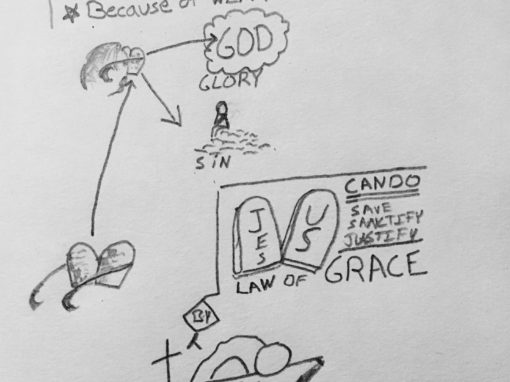 Because of
GOD
GLORY
SIN
JES
US
CANDO
SAVE
SANKTIFY
JUSTIFY
LAW OF GRACE
BY